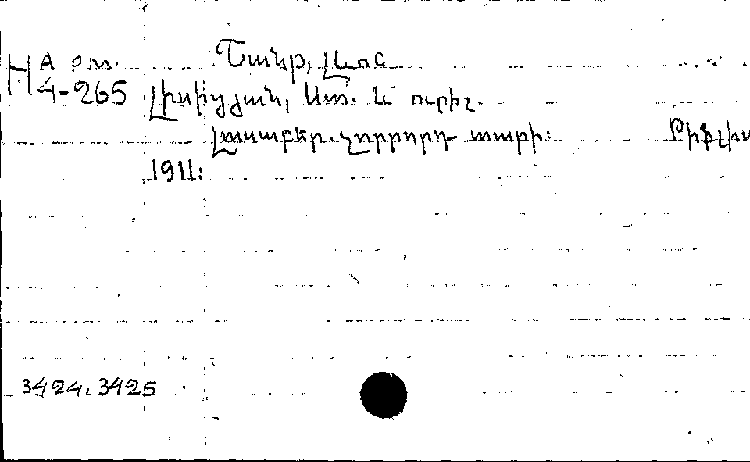 Շանթ, Լևոն
4-265 Լիսիցյան, Ստ. և ուրիշ.
Լուսաբեր. չորրորդ տարի. Թիֆլիս
1911:
3424. 3425